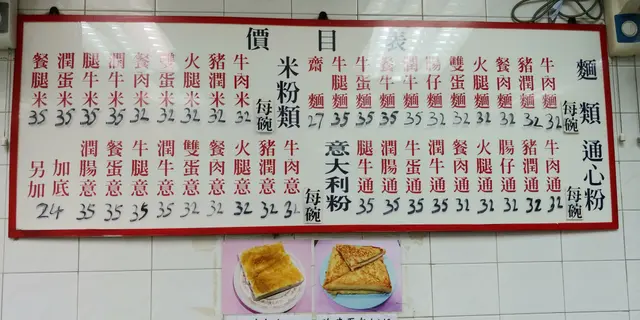 價目表
麵類 每碗
牛肉麵 32
豬潤麵 32
餐肉麵 32
火腿麵 32
雙蛋麵 32
腸仔麵 32
潤牛麵 35
餐牛麵 35
牛蛋麵 35
牛腿麵 35
齋麵 27
米粉類 每碗
牛肉米 32
豬潤米 32
火腿米 32
雙蛋米 32
餐肉米 32
潤牛米 35
腿牛米 35
潤蛋米 35
餐腿米 35
通心粉 每碗
牛肉通 32
豬潤通 32
腸仔通 32
火腿通 32
餐肉通 32
潤牛通 35
牛蛋通 35
潤腸通 35
腿牛通 35
意大利粉 每碗
牛肉意 32
豬潤意 32
火腿意 32
餐肉意 32
雙蛋意 32
潤牛意 35
牛腿意 35
餐蛋意 35
潤腸意 35
加底
另加 24